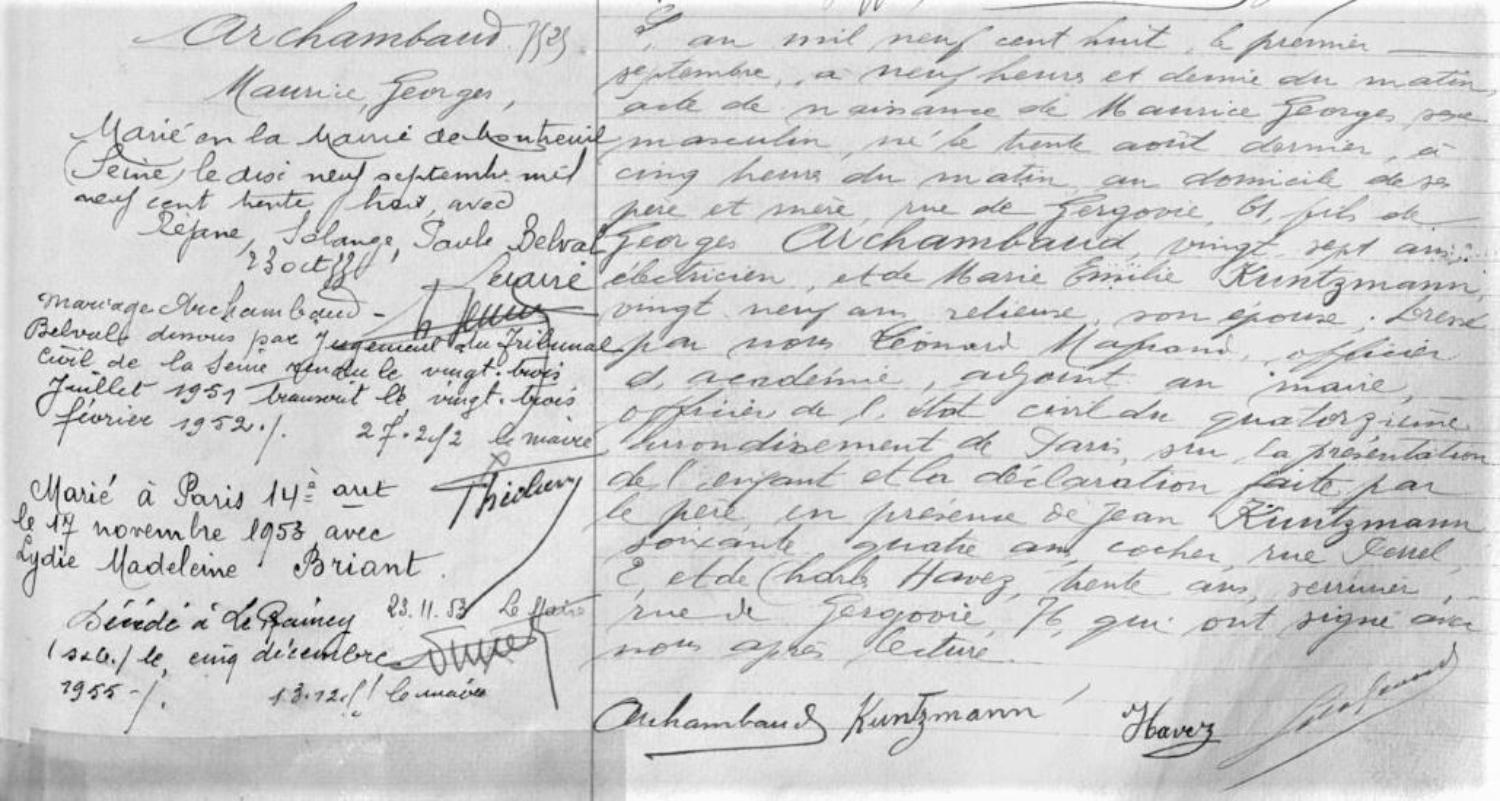 Archambaud
Maurice, Georges,
Marié en la Mairie de Montreuil
(Seine) le dix neuf septembre mil
neuf cent trente huit, avec
Réjane, Solange, Paule Belval
23 oct
Le maire
mariage Archambaud -
Belval dissous par Jugement du Tribunal
civil de la Seine rendu le vingt-trois
Juillet 1951 transcrit le vingt-trois
février 1952./.
27.2.52 le maire
Marié à Paris 14è arrt
le 17 novembre 1953 avec
Lydie Madeleine Briant.
23.11.53 Le Maire
Décédé à Le Raincy
(s&o.) le, cinq décembre
1955 -/.
13.12. le maire
L'an mil neuf cent huit, le premier
septembre, à neuf heures et demie du matin,
acte de naissance de Maurice Georges sexe
masculin, né le trente août dernier, à
cinq heures du matin, au domicile de ses
père et mère, rue de Gergovie, 61, fils de
Georges Archambaud, vingt sept ans,
électricien, et de Marie Emilie Kuntzmann,
vingt neuf ans relieuse, son épouse; Dressé
par nous Léonard, officier
d'académie, adjoint au maire,
officier de l'état civil du quatorzième
arrondissement de Paris, sur la présentation
de l'enfant et la déclaration faite par
le père, en présence de Jean Kuntzmann
soixante quatre ans, cocher, rue
2, et de Charles Havez, trente ans, serrurier,
rue de Gergovie, 76, qui ont signé avec
nous après lecture.
Archambaud Kuntzmann Havez